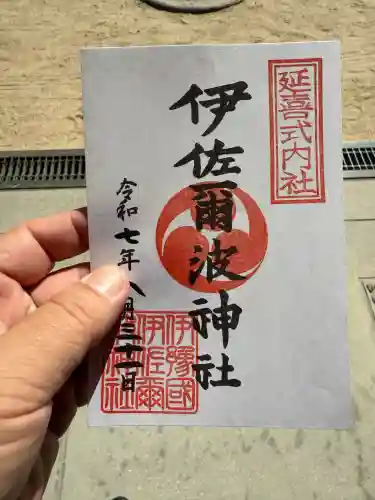 延喜式内社
伊佐爾波神社
令和七年八月三十一日
伊豫國
伊佐爾